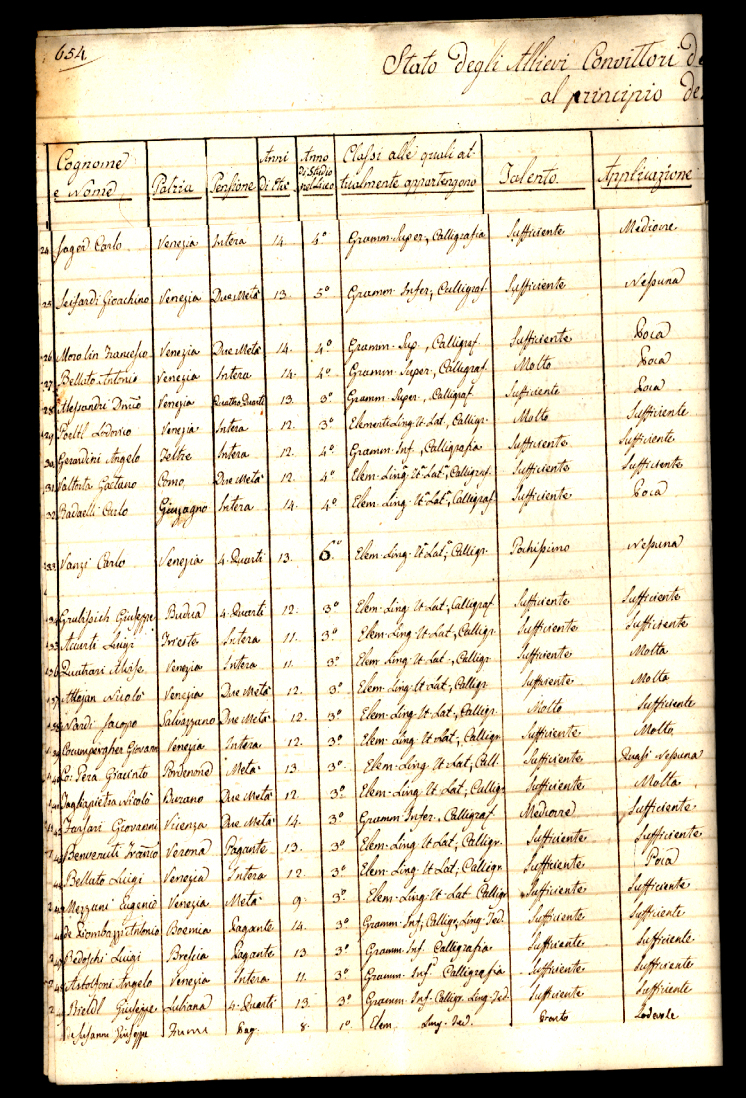 654
Stato degli Allievi Convittori de
al principio de
Cognome e Nome Patria Pensione Anni di Età Anno di Studio nel Liceo Classi alle quali attualmente appartengono Talento Applicazione
24 Jager Carlo Venezia Intera 14. 4.º Gramm. Super., Calligrafia Sufficiente Mediocre
25 Gioachino Venezia Due Metà 13. 5.º Gramm. Infer., Calligraf. Sufficiente Nessuna
26 Morolin Francesco Venezia Due Metà 14. 4.º Gramm. Sup., Calligraf. Sufficiente Poca
27 Belluto Antonio Venezia Intera 14. 4.º Gramm. Super., Calligraf. Molto Poca
28 Alessandri Venezia Quattro Quarti 13. 3.º Gramm. Super. Calligraf. Sufficiente Poca
29 Lodovico Venezia Intera 12. 3.º Element. Ling. It. Lat., Calligr. Molto Sufficiente
30 Gerardini Angelo Feltre Intera 12. 4.º Gramm. Inf., Calligrafia Sufficiente Sufficiente
31 Gaetano Como Due Metà 12. 4.º Elem. Ling. It. Lat., Calligraf. Sufficiente Sufficiente
32 Badaelli Carlo Intera 14. 4.º Elem. Ling. It. Lat., Calligraf. Sufficiente Poca
33 Vanzi Carlo Venezia 4. Quarti 13. 6.º Elem. Ling. It. Lat., Calligr. Pochissimo Nessuna
34 Giuseppe Budua 4. Quarti 12. 3.º Elem. Ling. It. Lat., Calligraf. Sufficiente Sufficiente
35 Acurti Luigi Trieste Intera 11. 3.º Elem. Ling. It. Lat., Calligr. Sufficiente Sufficiente
36 Quatrari Venezia Intera 11. 3.º Elem. Ling. It. Lat., Calligr. Sufficiente Molta
37 Nicolò Venezia Due Metà 12. 3.º Elem. Ling. It. Lat., Calligr. Sufficiente Molta
38 Nardi Jacopo Salvazzano Due Metà 12. 3.º Elem. Ling. It. Lat., Calligr. Molto Sufficiente
39 Giovanni Venezia Intera 12. 3.º Elem. Ling. It. Lat., Calligr. Sufficiente Molto
40 Pera Giacinto Pordenone Metà 13. 3.º Elem. Ling. It. Lat., Call. Sufficiente Quasi Nessuna
41 Tagliapietra Nicolò Burano Due Metà 12. 3.º Elem. Ling. It. Lat., Calligr. Sufficiente Molta
42 Fanfari Giovanni Vicenza Due Metà 14. 3.º Gramm. Infer., Calligraf. Mediocre Sufficiente
43 Benvenuti Verona Pagante 13. 3.º Elem. Ling. It. Lat., Calligr. Sufficiente Sufficiente
44 Belluto Luigi Venezia Intera 12. 3.º Elem. Ling. It. Lat., Calligr. Sufficiente Poca
45 Mezzani Eugenio Venezia Metà 9. 3.º Elem. Ling. It. Lat. Calligr. Sufficiente Sufficiente
46 de Piombazzi Antonio Boemia Pagante 14. 3.º Gramm. Inf., Calligr., Ling. Ted. Sufficiente Sufficiente
47 Pedoschi Luigi Brescia Pagante 13 3.º Gramm. Inf. Calligrafia Sufficiente Sufficiente
48 Astolfoni Angelo Venezia Intera 11. 3.º Gramm. Inf. Calligrafia Sufficiente Sufficiente
49 Giuseppe Lubiana 4. Quarti 13. 3.º Gramm. Inf. Calligr. Ling. Ted. Sufficiente Sufficiente
Susanni Giuseppe Fiume Pag. 8. 1.º Elem. Ling. Ted. Pronto Lodevole